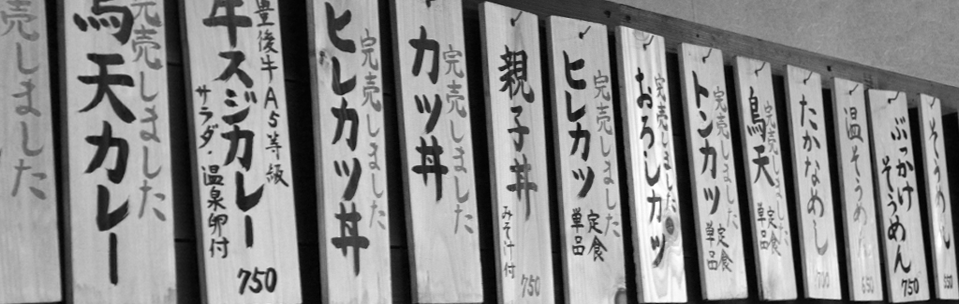 売しました
鳥天カレー
完売しました
牛スジカレー
豊後牛A5等級
サラダ・温泉卵付
750
ヒレカツ丼
完売しました
カツ丼
完売しました
親子丼
みそ汁付
750
ヒレカツ
完売しました
定食
単品
おろしカツ
完売しました
トンカツ
完売しました
定食
単品
鳥天
完売しました
定食
単品
たかなめし
温そうめん
ぶっかけ
そうめん
750
そうめん